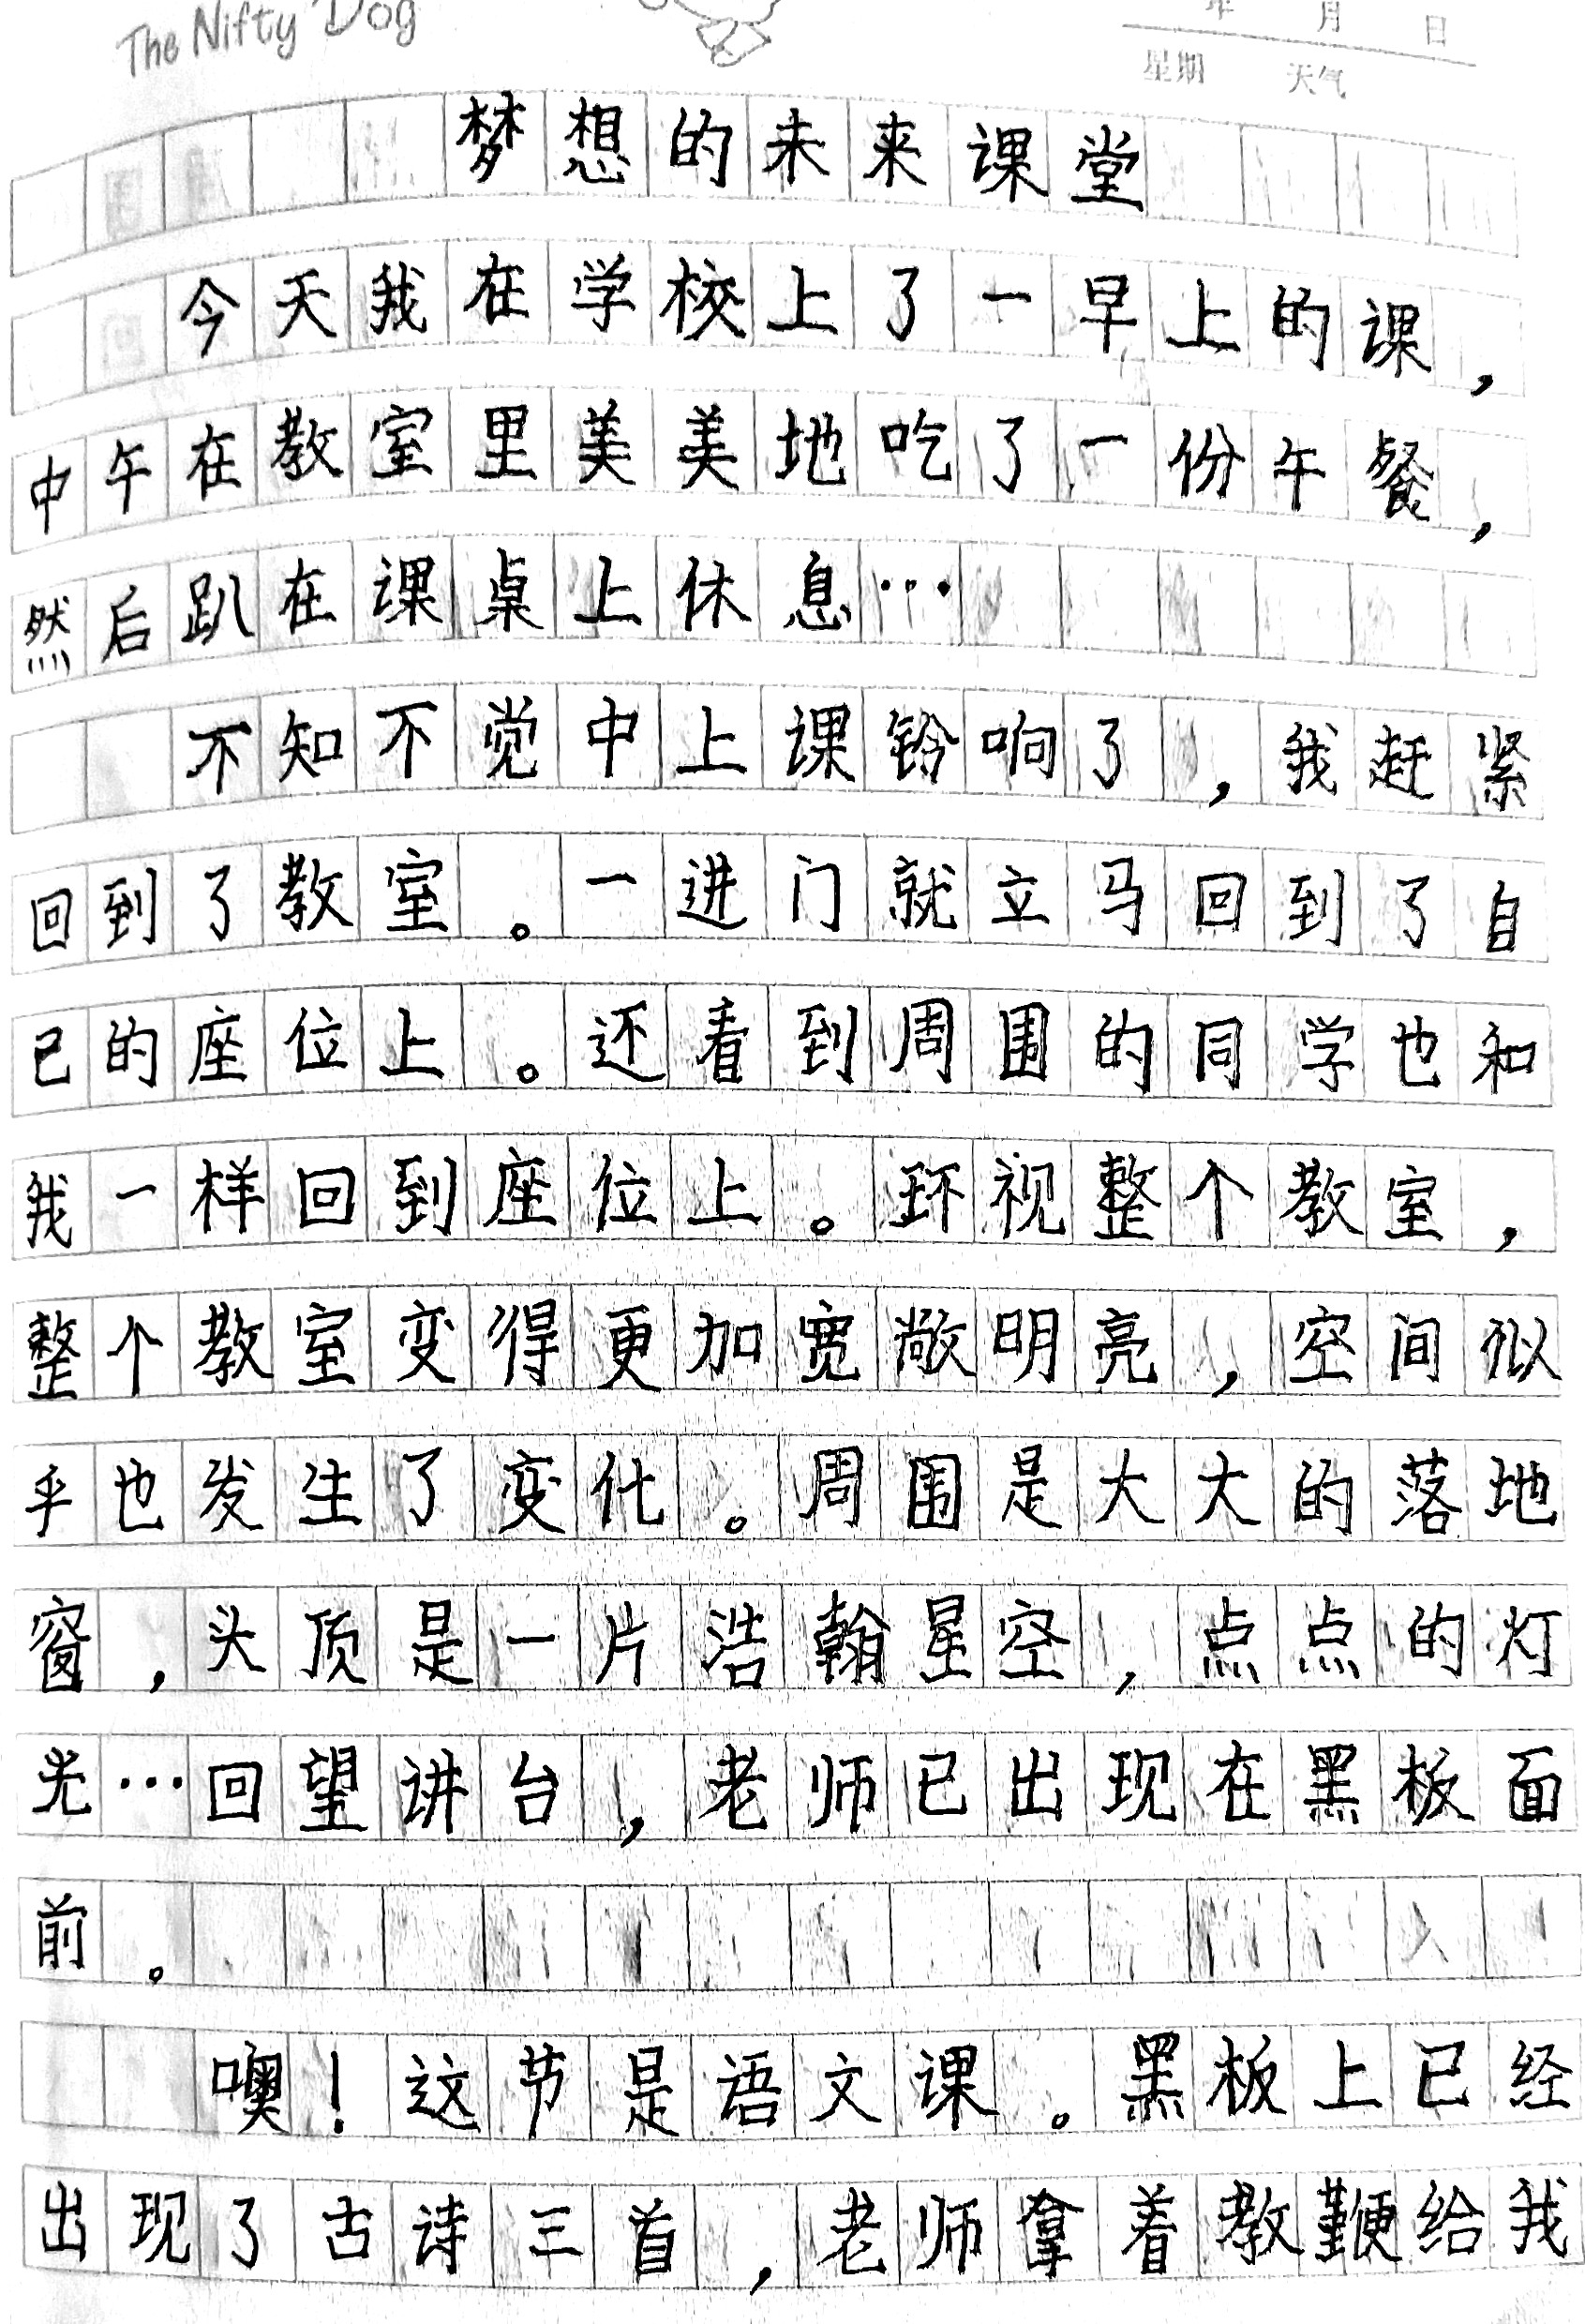 The Nifty Dog
年 月 日
星期 天气
梦想的未来课堂
今天我在学校上了一早上的课，
中午在教室里美美地吃了一份午餐，
然后趴在课桌上休息…
不知不觉中上课铃响了，我赶紧
回到了教室。一进门就立马回到了自
己的座位上。还看到周围的同学也和
我一样回到座位上。环视整个教室，
整个教室变得更加宽敞明亮，空间似
乎也发生了变化。周围是大大的落地
窗，头顶是一片浩翰星空，点点的灯
光…回望讲台，老师已出现在黑板面
前。
噢！这节是语文课。黑板上已经
出现了古诗三首，老师拿着教鞭给我